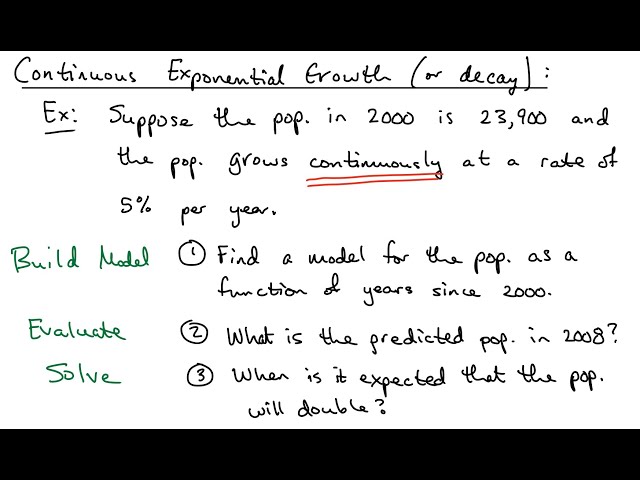 Continuous Exponential Growth (or decay):
Ex: Suppose the pop. in 2000 is 23,900 and
the pop. grows continuously at a rate of
5% per year.
Build Model ① Find a model for the pop. as a
function of years since 2000.
Evaluate ② What is the predicted pop. in 2008?
Solve ③ When is it expected that the pop.
will double?